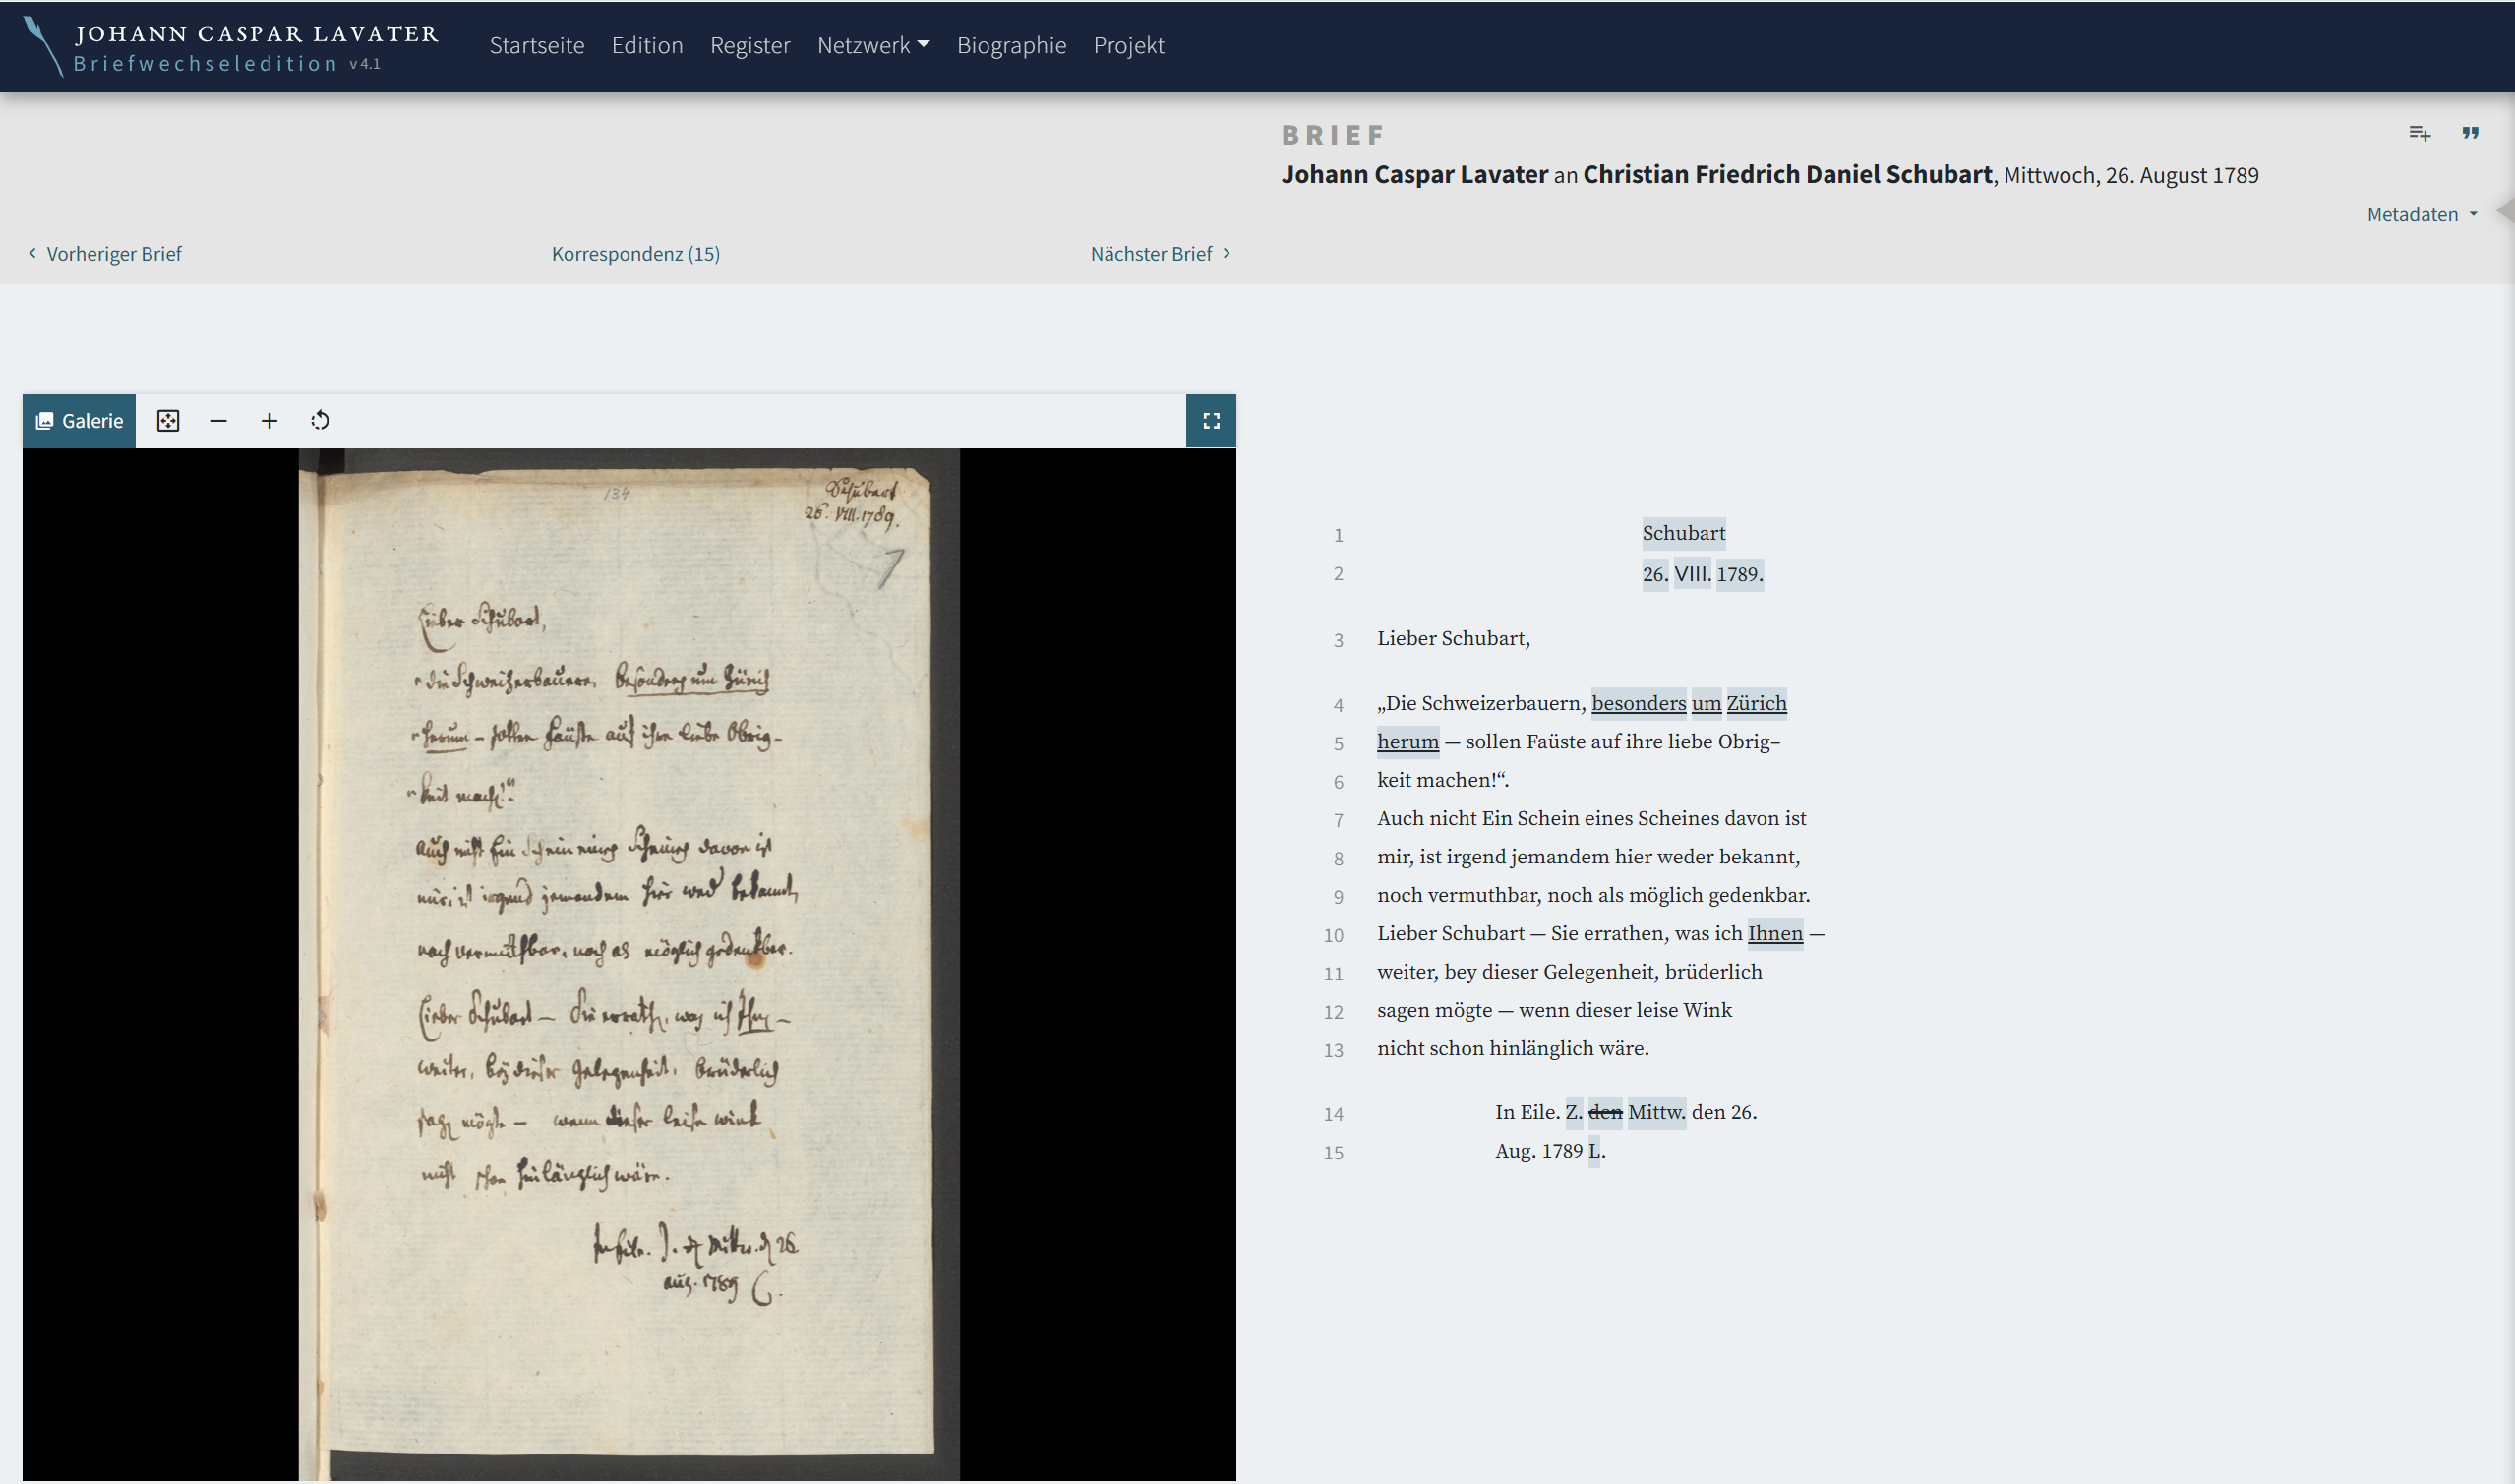 JOHANN CASPAR LAVATER
Briefwechseledition v 4.1
Startseite Edition Register Netzwerk Biographie Projekt
BRIEF
Johann Caspar Lavater an Christian Friedrich Daniel Schubart, Mittwoch, 26. August 1789
Metadaten
Vorheriger Brief Korrespondenz (15) Nächster Brief
Galerie
134
Schubart
26. VIII. 1789.
7
Lieber Schubart,
"die Schweizerbauern, besonders um Zürich
"herum – sollen Faüste auf ihre liebe Obrig-
"keit machen!"
Auch nicht Ein Schein eines Scheines davon ist
mir, ist irgend jemandem hier weder bekannt,
noch vermuthbar, noch als möglich gedenkbar.
Lieber Schubart – Sie errathen, was ich Ihnen –
weiter, bey dieser Gelegenheit, brüderlich
sagen mögte – wenn dieser leise Wink
nicht schon hinlänglich wäre.
In Eile. Z. den Mittw. den 26.
Aug. 1789 L.
1 Schubart
2 26. VIII. 1789.
3 Lieber Schubart,
4 „Die Schweizerbauern, besonders um Zürich
5 herum — sollen Faüste auf ihre liebe Obrig–
6 keit machen!“.
7 Auch nicht Ein Schein eines Scheines davon ist
8 mir, ist irgend jemandem hier weder bekannt,
9 noch vermuthbar, noch als möglich gedenkbar.
10 Lieber Schubart — Sie errathen, was ich Ihnen —
11 weiter, bey dieser Gelegenheit, brüderlich
12 sagen mögte — wenn dieser leise Wink
13 nicht schon hinlänglich wäre.
14 In Eile. Z. den Mittw. den 26.
15 Aug. 1789 L.